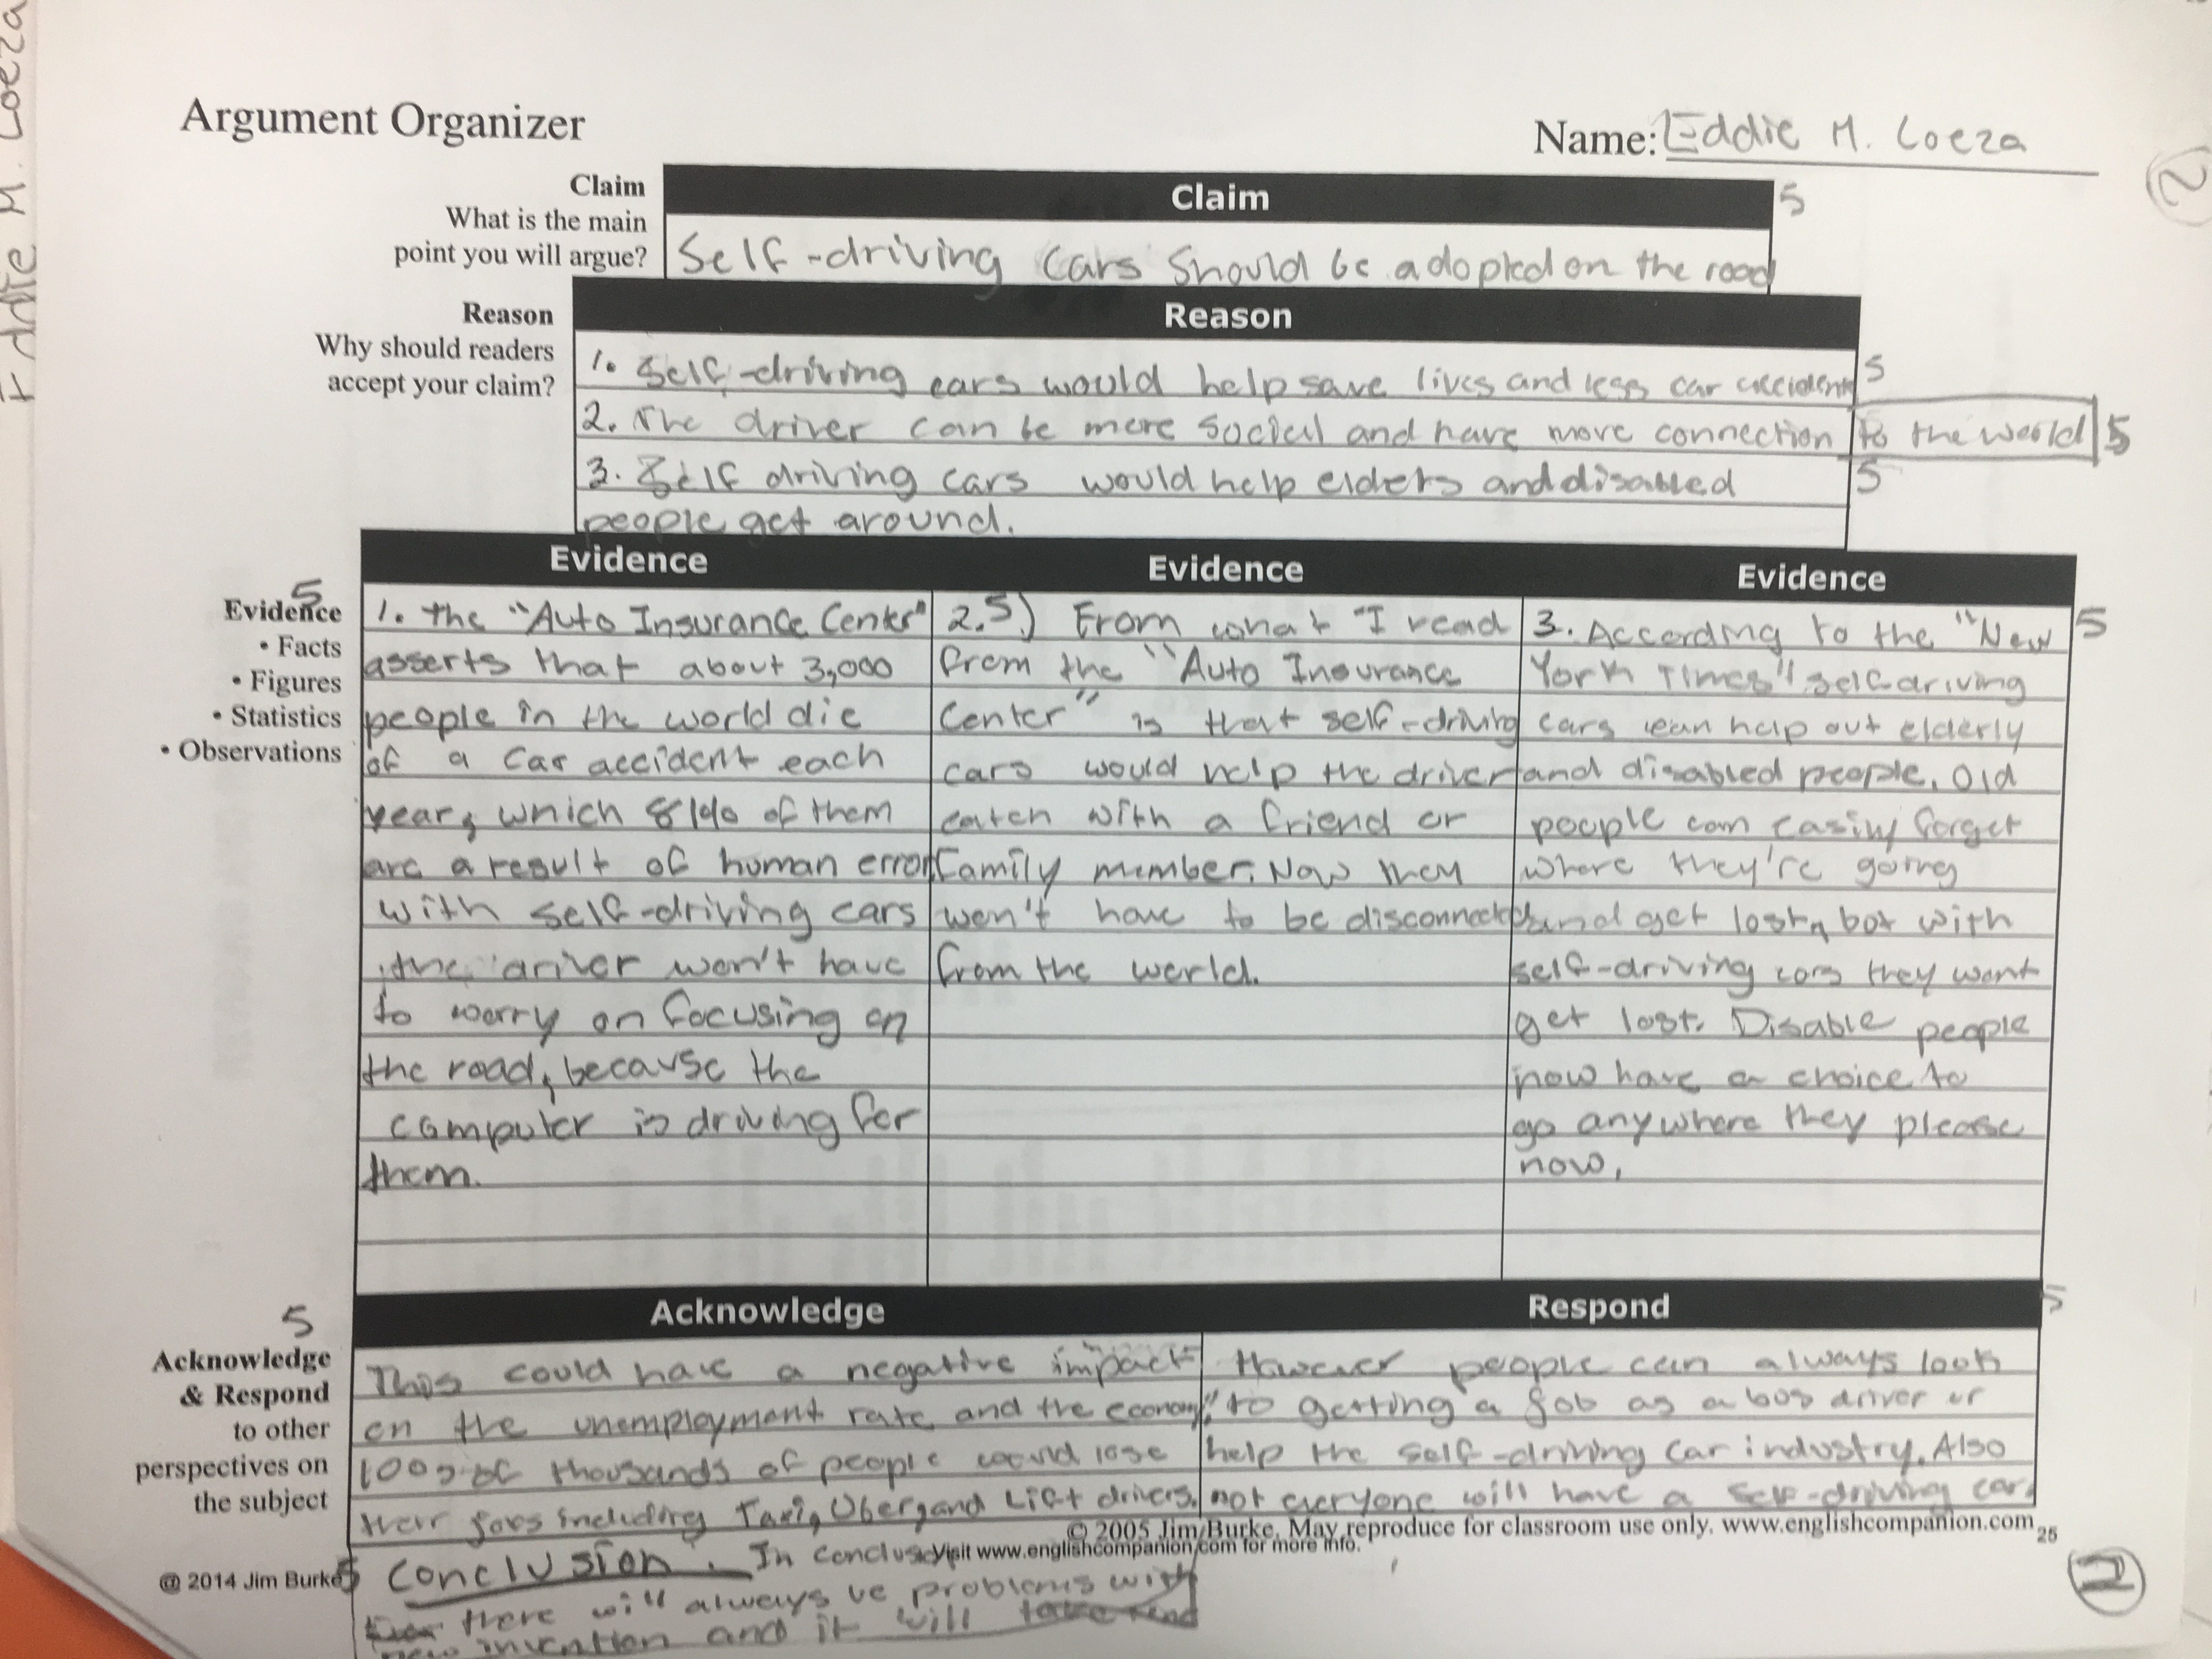 Eddie M. Loeza
Argument Organizer
Name: Eddie M. Loeza
2
Claim
What is the main
point you will argue?
Claim
5
Self-driving cars should be adopted on the road
Reason
Why should readers
accept your claim?
Reason
1. Self-driving cars would help save lives and less car accidents 5
2. The driver can be more social and have more connection to the world 5
3. Self driving cars would help elders and disabled 5
people get around.
Evidence 5
• Facts
• Figures
• Statistics
• Observations
Evidence
1. the "Auto Insurance Center"
asserts that about 3,000
people in the world die
of a car accident each
year, which 81% of them
are a result of human error,
with self-driving cars
the driver won't have
to worry on focusing on
the road, because the
computer is driving for
them.
Evidence
2.5) From what I read
from the "Auto Insurance
Center" is that self-driving
cars would help the driver
catch with a friend or
family member. Now them
won't have to be disconnected
from the world.
Evidence
3. According to the "New 5
York Times" self driving
cars can help out elderly
and disabled people. Old
people can easily forget
where they're going
and get lost, but with
self-driving cars they wont
get lost. Disable people
now have a choice to
go anywhere they please
now.
5
Acknowledge
& Respond
to other
perspectives on
the subject
Acknowledge
This could have a negative impact
on the unemployment rate and the economy,"
100s of thousands of people would lose
their jobs including Taxi, Uber, and Lift drivers.
Respond
5
However people can always look
to getting a job as a bus driver or
help the self-driving car industry. Also
not everyone will have a self-driving car.
© 2005 Jim Burke. May reproduce for classroom use only. www.englishcompanion.com
25
@ 2014 Jim Burke
Visit www.englishcompanion.com for more info.
5 Conclusion: In conclusion
there will always ve problems with
new invention and it will
1